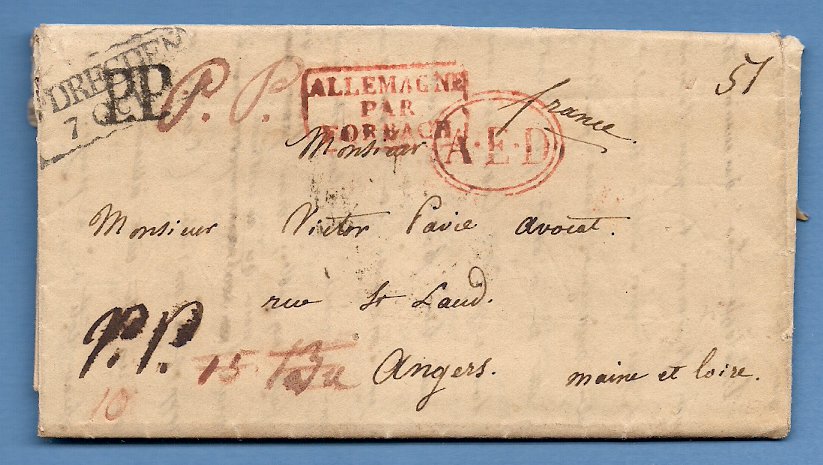 DRESDEN
7 OC
P.P.
P. P.
ALLEMAGNE
PAR
FORBACH
A·E·D
france.
51
Monsieur
Monsieur Victor Pavie avocat.
rue St Laud.
P.P.
15
10
Angers. maine et loire.